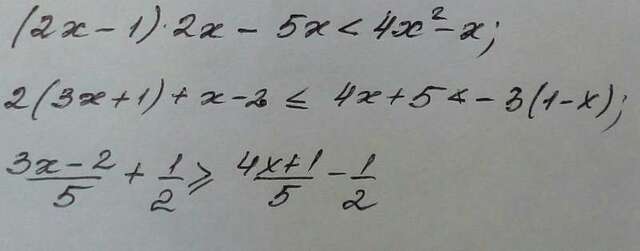 (2x-1)·2x - 5x < 4x²-x;
2(3x+1)+x-2 ≤ 4x+5 < -3(1-x);
\frac{3x-2}{5} + \frac{1}{2} ≥ \frac{4x+1}{5} - \frac{1}{2}